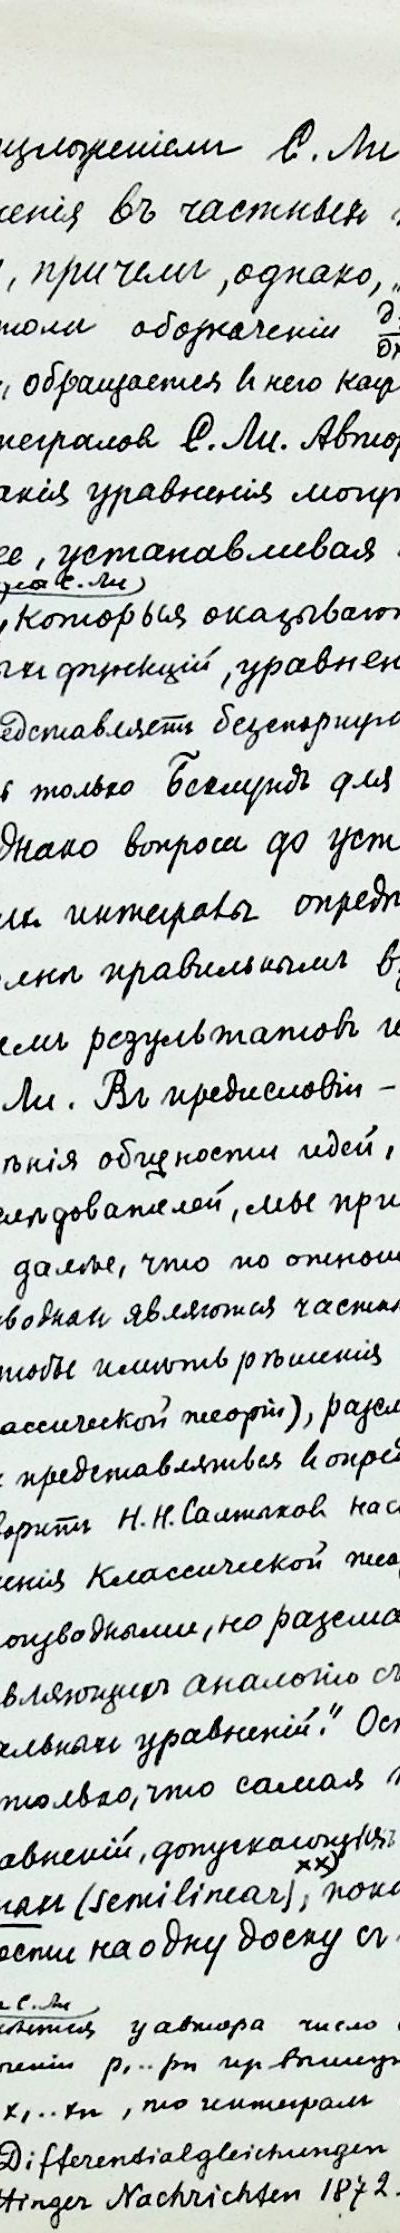 изложеніемъ С. Ли
женія въ частныхъ
, причемъ, однако, „
обозначеніи ∂
, обращается въ него
интеграловъ С. Ли. Автор
такія уравненія могут
ее, устанавливая
С. Ли)
, которыя оказывают
ыхъ функцій, уравнен
едставляетъ безспорную
только Беклундъ для
днако вопроса до уст
интегралы опредѣ
олнѣ правильнымъ в
емъ результатовъ
Ли. Въ предисловіи –
ѣнія общности идей,
слѣдователей, мы при
далѣе, что по отнош
зводная являются частн
чтобы имѣть рѣшенія
лассической теоріи), разсм
представляться въ опред
воритъ Н. Н. Салтыковъ нас
ненія классической тео
оизводными, но разсма
авляющихъ аналогію съ
альныхъ уравненій." Ост
только, что самая
авненій, допускающихъ
xx)
(semilinear), пока
ости на одну доску съ
С. Ли
у автора число
p,..pn
x,..xn, то интегралъ
Differentialgleichungen
ttinger Nachrichten 1872.